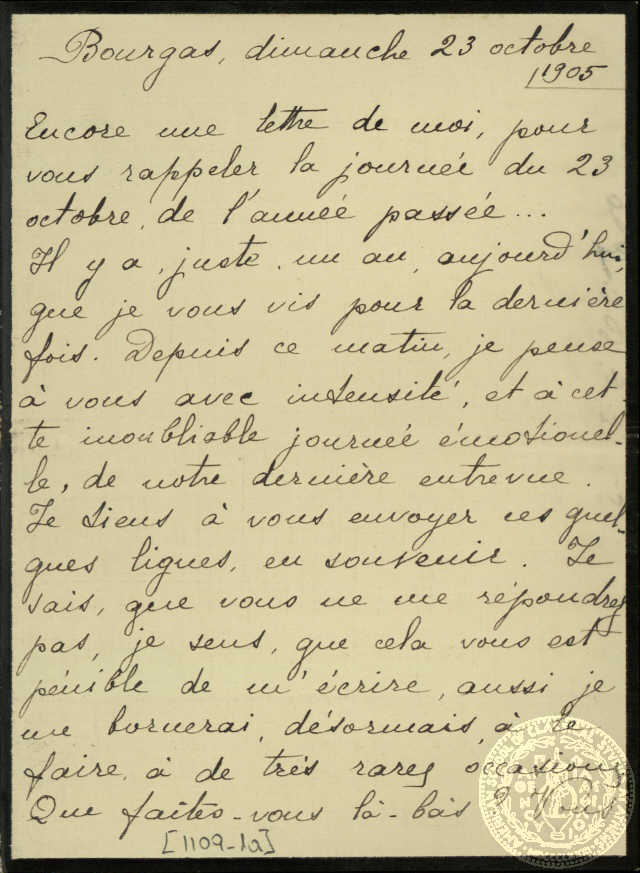 Bourgas, dimanche 23 octobre
1905
Encore une lettre de moi, pour
vous rappeler la journée du 23
octobre, de l'année passée...
Il y a, juste, un an, aujourd'hui,
que je vous vis pour la dernière
fois. Depuis ce matin, je pense
à vous avec intensité, et à cet-
te inoubliable journée émotionel-
le, de notre dernière entrevue.
Je tiens à vous envoyer ces quel-
ques lignes, en souvenir. Je
sais, que vous ne me répondrez
pas, je sens, que cela vous est
pénible de m'écrire, aussi je
me bornerai, désormais, à le
faire, à de très rares occasions.
Que faites-vous là-bas? Vous
[1109-1a]